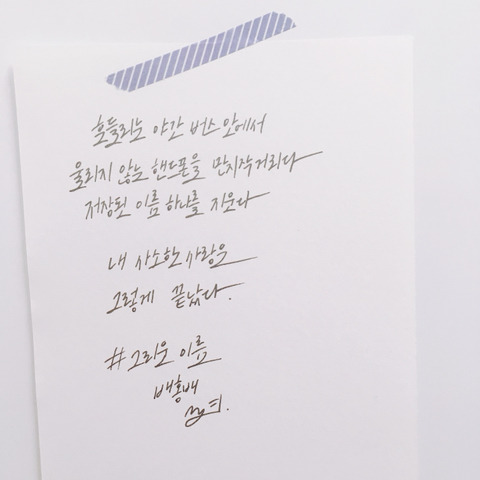 흔들리는 야간 버스 안에서
울리지 않는 핸드폰을 만지작거리다
저장된 이름 하나를 지운다
내 사소한 사랑은
그렇게 끝났다.
#그리운 이름
배홍배